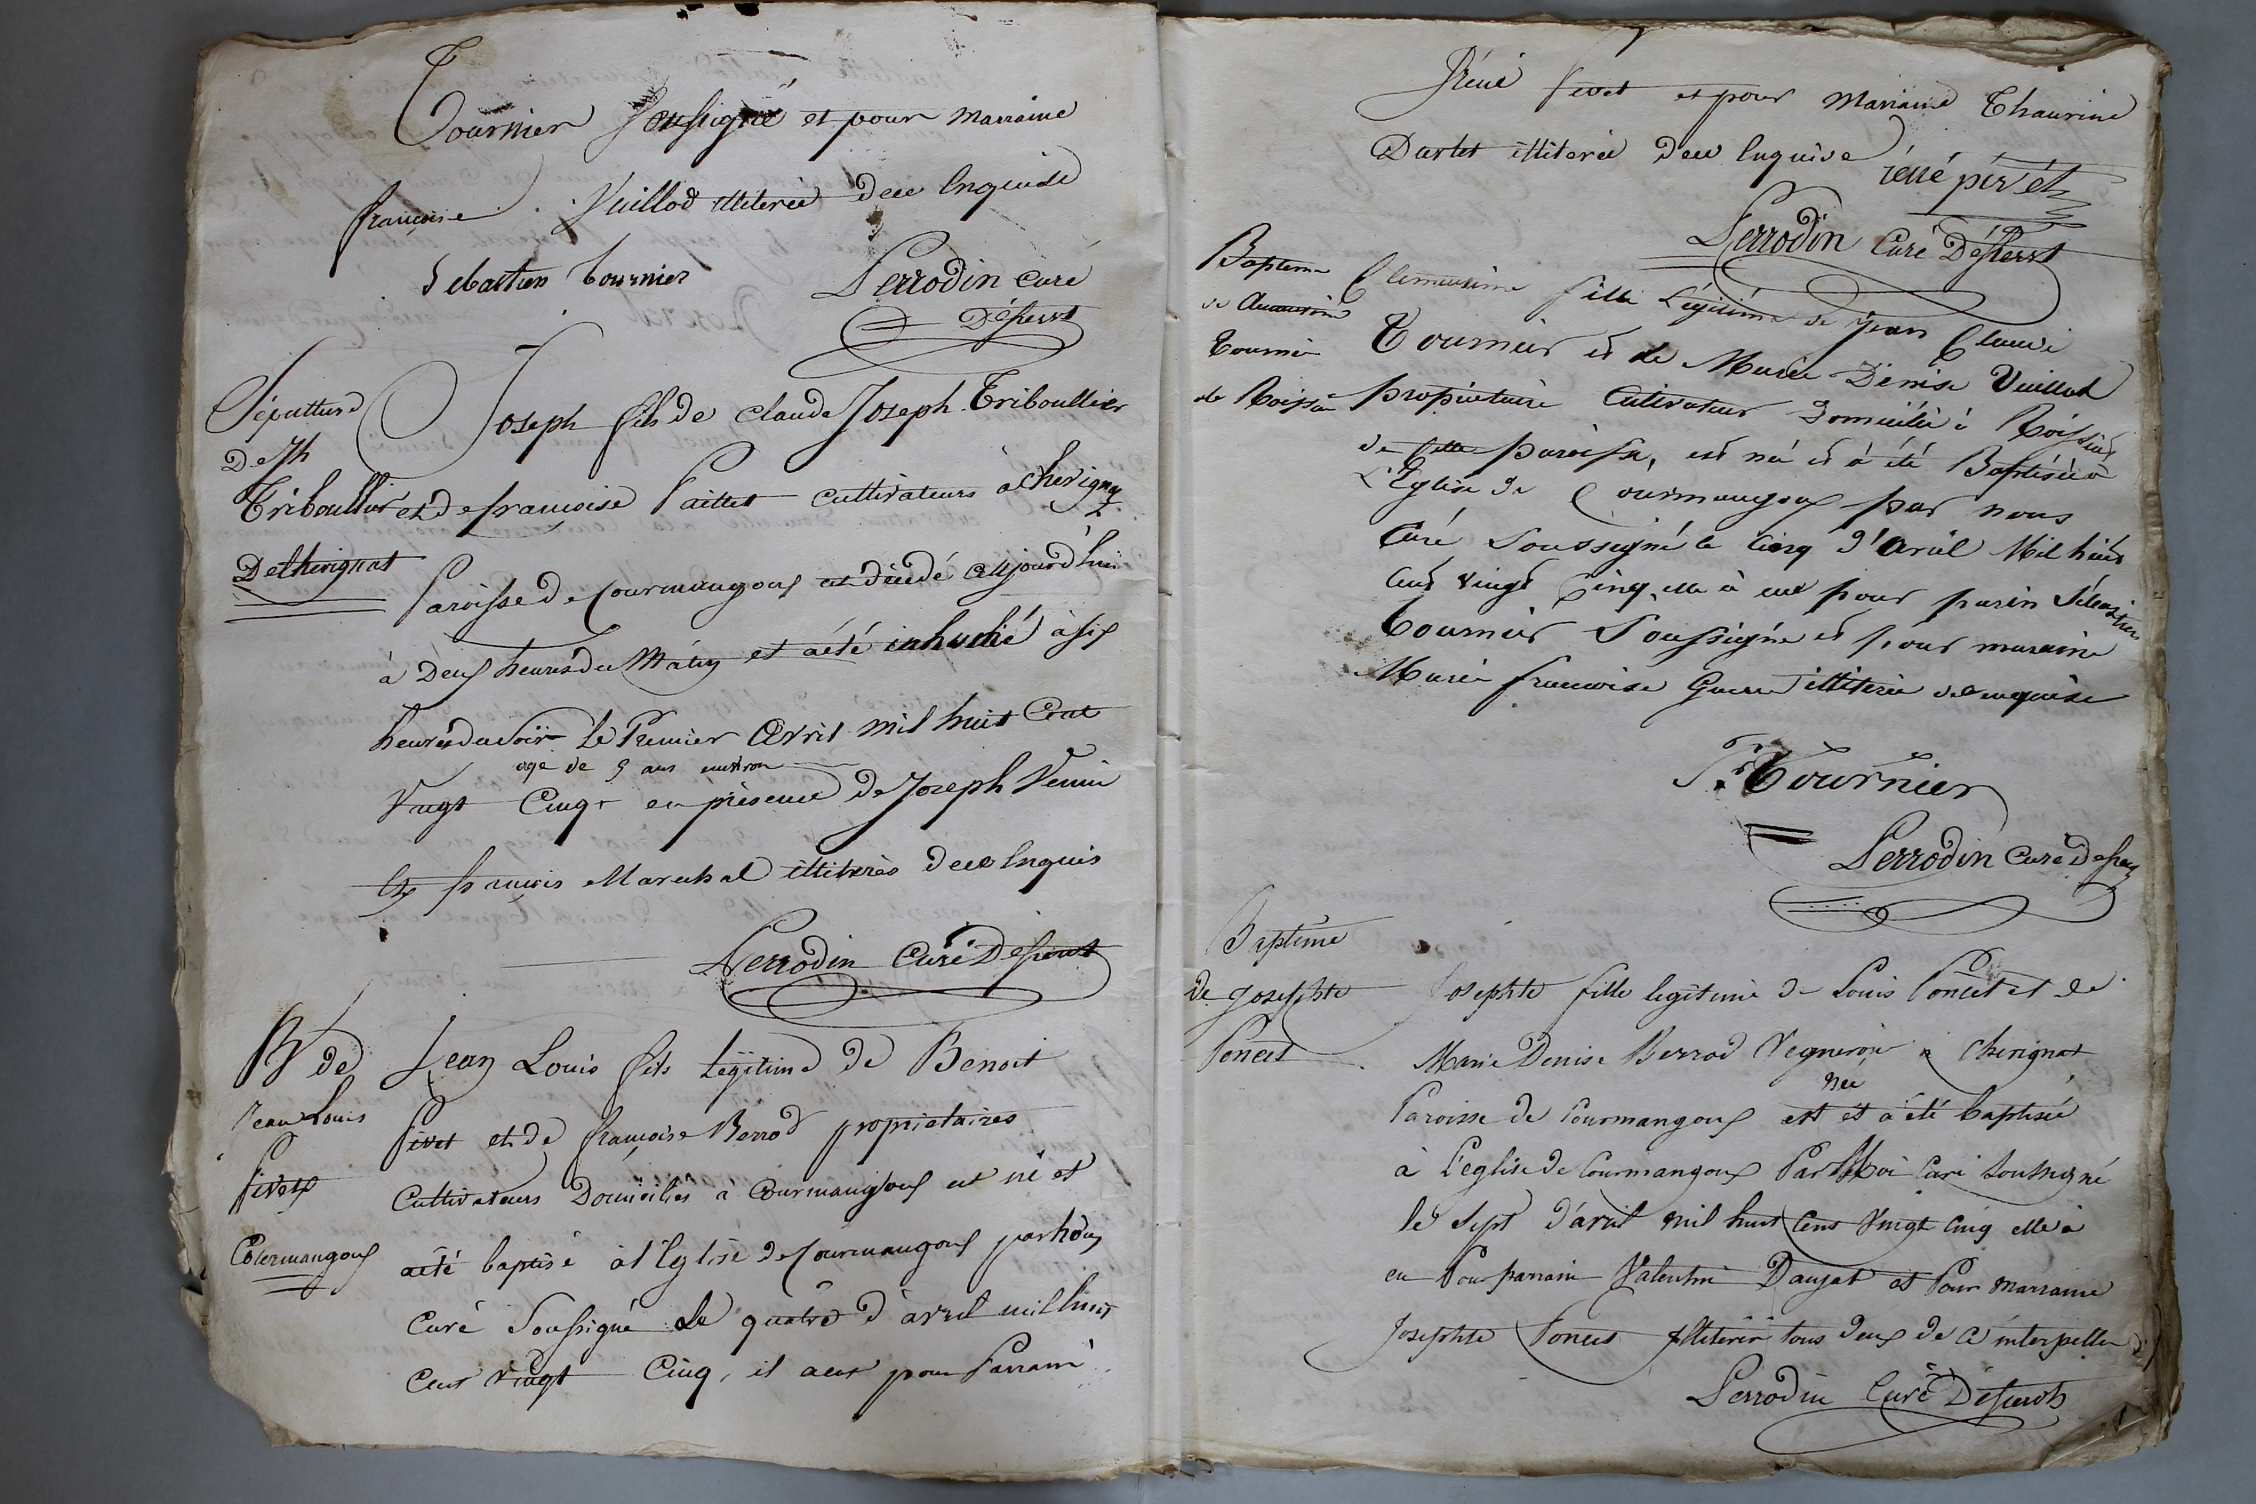 Tournier Soussigné et pour marraine
françoise Vuillod illiterée dece enquise
Sebastien tournier Perrodin curé
Désserv
Sépulture
De Jh
Triboullier
De Chérignat
Joseph fils de Claude Joseph Triboullier
et de françoise Paillet cultivateurs à Cherignat
Paroisse de Courmangoux est décédé aujourd'hui
à Deux heures du Matin et a été inhumé à six
heures du soir le Premier Avril mil huit Cent
age de 9 ans environ
Vingt Cinq en présence de Joseph Venin
et françois Marechal illiterés dece enquis
Perrodin Curé Desservt
B de
Jean Louis
pivet
Courmangoux
Jean Louis fils légitime de Benoit
pivet et de françoise Berrod proprietaires
Cultivateurs Domicilies a Courmangoux est né et
a été baptisé à l'Eglise de Courmangoux par nous
Curé Soussigné le quatre d'avril mil huit
Cent Vingt Cinq, il a eu pour Parrain
Réné pivet et pour Marraine Thaurine
Darlet illiterée dece enquise
réné pivét
Perrodin Curé Desservt
Bapteme
de
Tournier
de Roissiat
fille Légitime de Jean Claude
Tournier et de Marie Denise Vuillod
propriétaire Cultivateur Domicilié à Roissiat
de cette paroisse, est née et à été Baptisée à
L'Eglise de Courmangoux par nous
Curé Soussigné le cinq d'avril Mil huit
cent vingt Cinq, elle à eue pour parin Sébastien
Tournier Soussigné et pour maraine
Marie francoise illiterée de enquise
Sn Tournier
Perrodin Curé Desserv
Baptême
de Josephte
Poncet
Josephte fille legitime de Louis Poncet et de
Marie Denise Berrod Vigneron a Cherignat
née
Paroisse de Courmangoux est et a été baptisée
à l'eglise de Courmangoux Par Moi Curé soussigné
le sept d'avril mil huit Cent Vingt Cinq elle à
eu Pour parrain Valentin Daujat et Pour marraine
Josephte Poncet illiterés tous deux de ce interpellés
Perrodin Curé Desservt